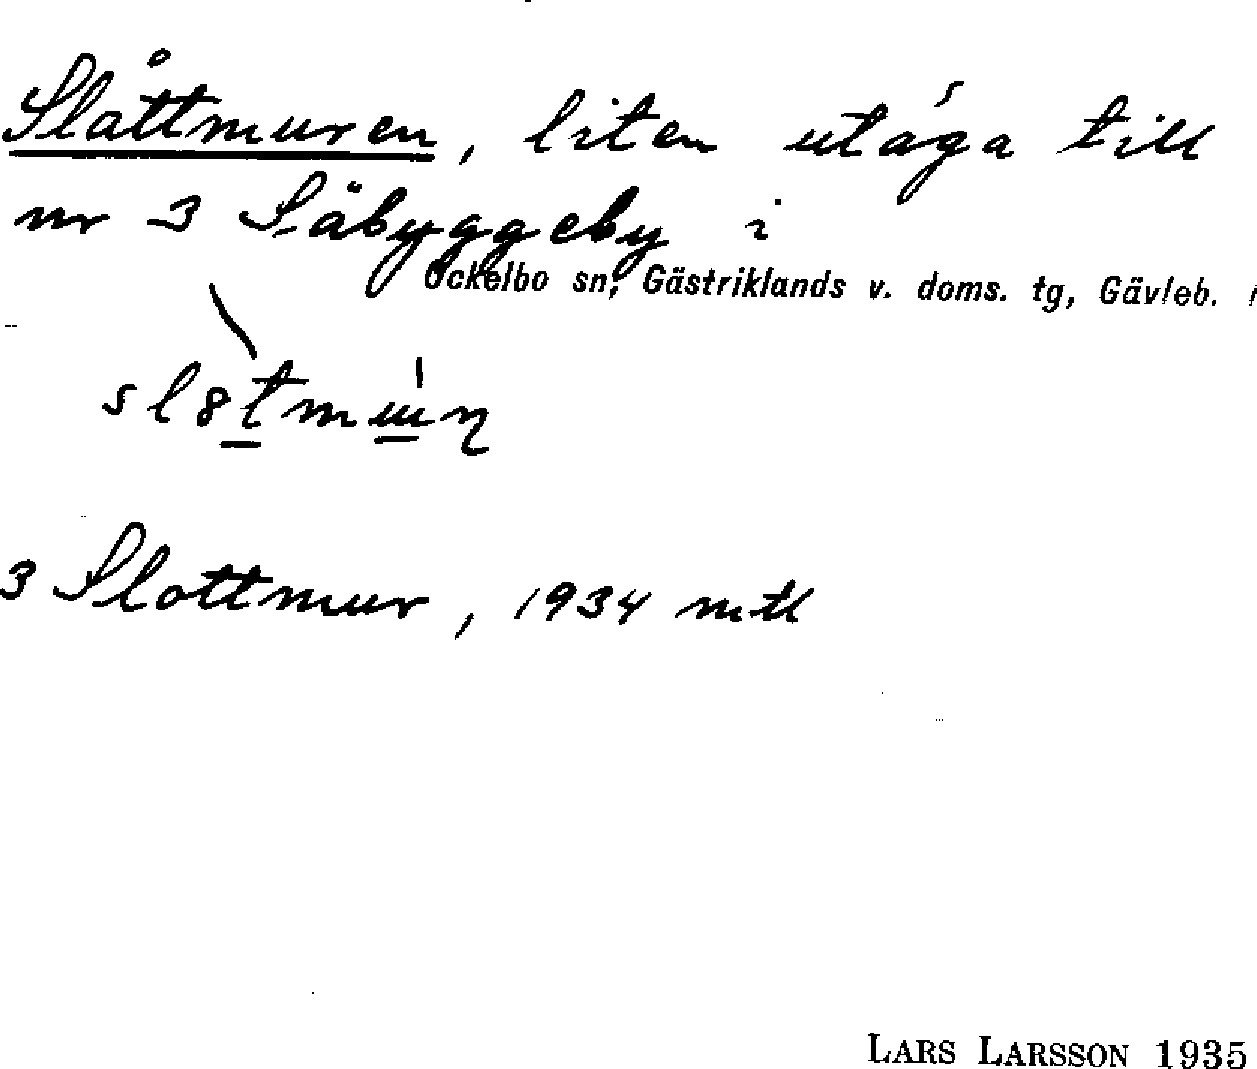 Slåttmuren, liten utåga till
nr 3 Säbyggeby i
Ockelbo sn, Gästriklands v. doms. tg, Gävleb.
3 Slottmur, 1934 mtl
LARS LARSSON 1935